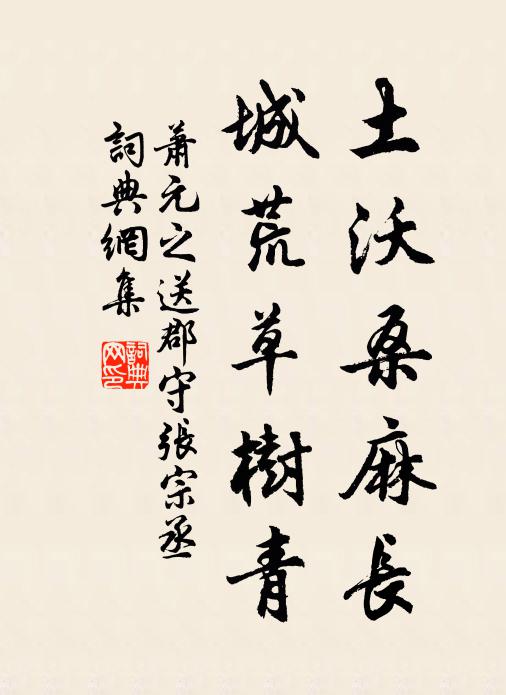 土沃桑麻長
城荒草樹青
蕭元之送郡守張宗丞
詞典網集
詞典網印